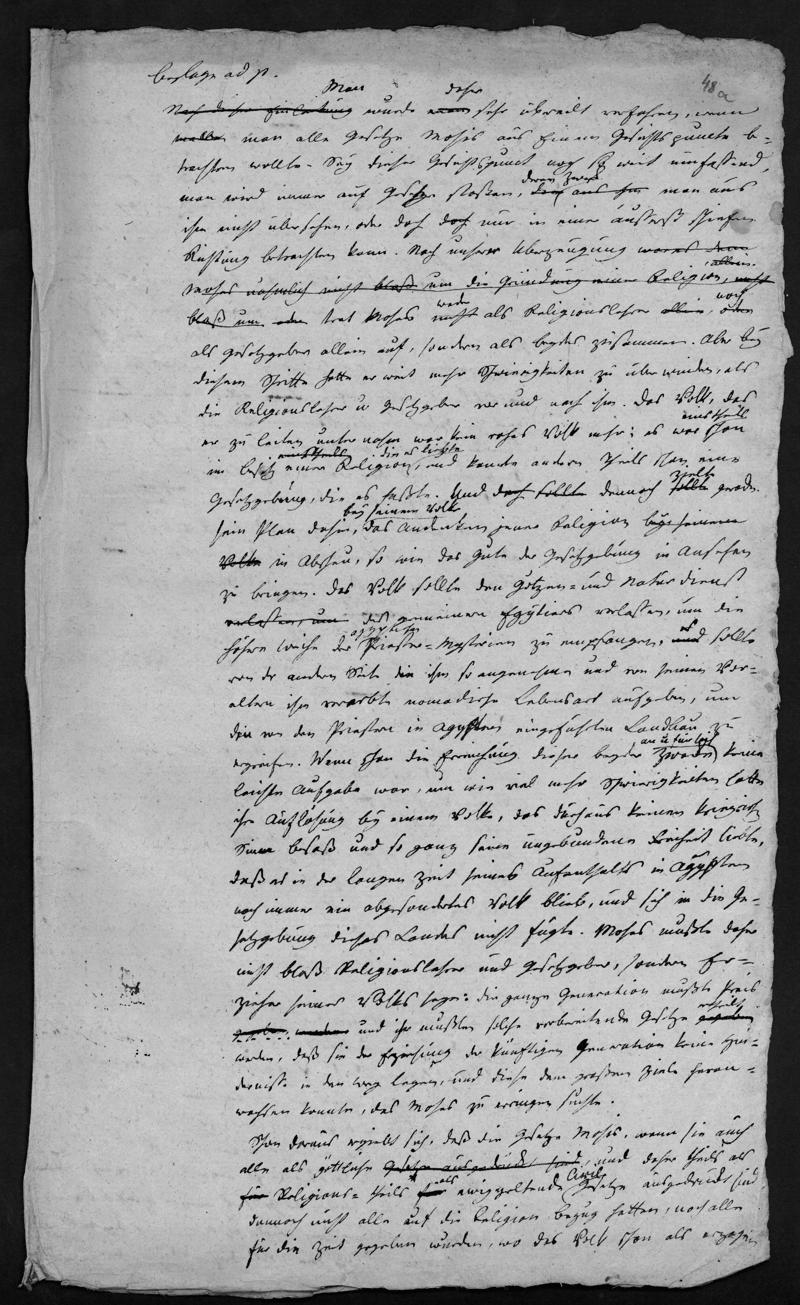 Beylage ad p.
48a
Man daher
Nach dieser Einleitung wurde man sehr übereilt verfahren, wenn
man alle Gesetze Mosis aus Einem Gesichtspuncte be-
trachten wollte. Sey dieser Gesichtspunct noch so weit umfassend,
man wird immer auf Gesetze stoßen, deren Zweck man aus
ihm nicht übersehen, oder doch doch nur in einer äußerst schiefen
Richtung betrachten kann. Nach unserer Überzeugung
Moses nähmlich nicht bloß um die Gründung einer Religion, allein nicht
bloß um trat Moses weder nicht als Religionslehrer allein, noch oder
als Gesetzgeber allein auf, sondern als beydes zusammen. Aber bey
diesem Schritte hatte er weit mehr Schwierigkeiten zu überwinden, als
die Religionslehrer u Gesetzgeber vor und nach ihm. Das Volk, das
er zu leiten unternahm war kein rohes Volk mehr: es war einstheils schon
im besitz einer Religion, die es liebte, und kannte andern Theils schon eine
Gesetzgebung, die es haßte. Und doch sollte dennoch zielte sollte gerade
sein Plan dahin, bey seinem Volke das Andenken jener Religion bey seinem
Volke in Abscheu, so wie das Gute der Gesetzgebung in Ansehen
zu bringen. Das Volk sollte den Götzen- und Naturdienst
verlassen, um des gemeinen Egyptiers verlassen, um die
höhere Weihe der ägyptischen Priester-Mysterien zu empfangen, es und sollte
von der andern Seite die ihm so angenehme und von seinen Vor-
ältern ihm vererbte nomadische Lebensart aufgeben, um
den von den Priestern in Ägypten eingeführten Landbau zu
ergreifen. Wenn schon die Erreichung dieser beyden Zwecke an u für sich keine
leichte Aufgabe war, um wie viel mehr Schwierigkeiten hatte
ihre Auflösung bey einem Volke, das durchaus keinen kriegrisch
Sinn besaß und so ganz seine ungebundene Freiheit liebte,
daß es in der langen Zeit seines Aufenthalts in Ägypten
noch immer ein abgesondertes Volk blieb, und sich in die Ge-
setzgebung dieses Landes nicht fügte. Moses mußte daher
nicht bloß Religionslehrer und Gesetzgeber, sondern Er-
zieher seines Volks seyn: die ganze Generation mußte Preis
gegeben werden und ihr mußten solche vorbereitende Gesetze ertheilt gegeben
werden, daß sie der Erziehung der künftigen Generation keine Hin-
dernisse in den Weg legen, und diese dem großen Ziele heran-
wachsen konnte, das Moses zu erringen suchte.
Schon daraus ergiebt sich, daß die Gesetze Mosis, wenn sie auch
alle als göttliche Gesetze ausgedruckt sind, und daher theils als
für Religions- theils für als ewiggeltende Civil Gesetze ausgedruckt sind
dennoch nicht alle auf die Religion bezug hatten, noch alle
für die Zeit gegeben wurden, wo das Volk schon als